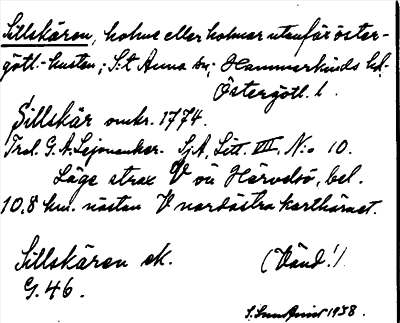 Sillskären, holme eller holmar utanför öster-
götl.-kusten; S:t Anna sn; Hammarkinds hd.
Östergötl. l.
Sillskär omkr. 1774.
Trol. G. A. Lejonanker. SjA, Litt. VIII, N:o 10.
Läge strax V om Härvdsö, bel.
10,8 km. nästan V nordöstra karthörnet.
Sillskären ek.
(Vänd!)
G. 46.
1938.